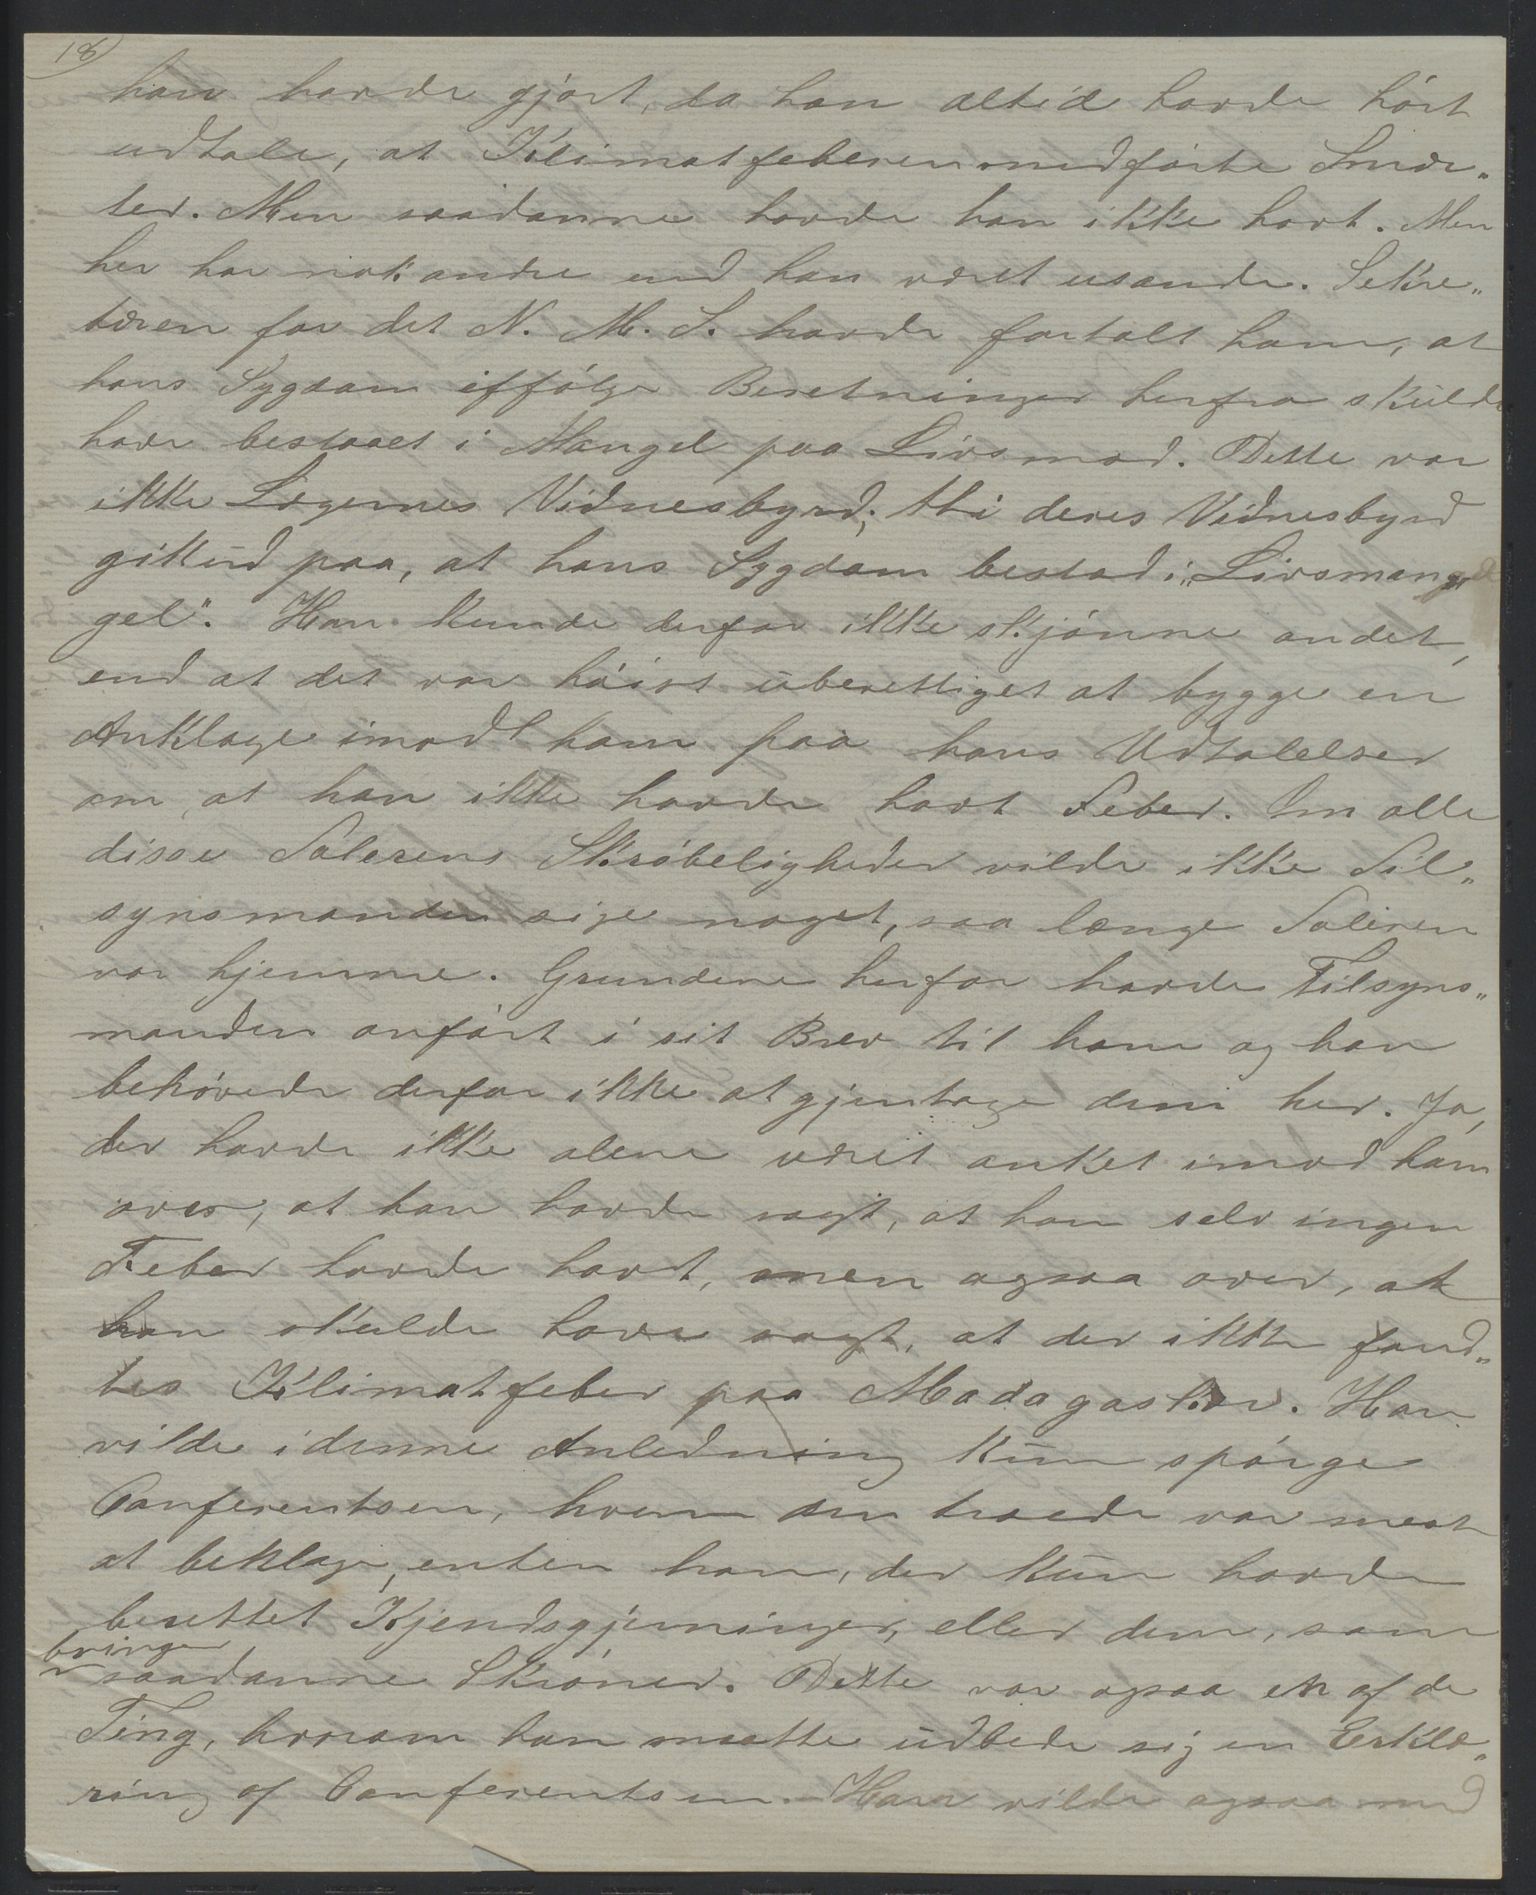 18)
han havde gjort, da han altid havde hört
udtale, at Klimatfeberen medförte Smer„
ter. Men saadanne havde han ikke havt. Men
her har nok andre end han været usande. Sekre„
tæren for det N. M. S. havde fortalt ham, at
hans Sygdom ifölge Beretninger herfra skulde
have bestaaet i Mangel paa Livsmod. Dette var
ikke Lægernes Vidnesbyrd; thi deres Vidnesbyrd
gik ud paa, at hans Sygdom bestod i „Livsman„
gel". Han kunde derfor ikke skjönne andet,
end at det var höist uberettiget at bygge en
Anklage imod ham paa hans Udtalelser
om, at han ikke havde havt Feber. Om alle
disse Talerens Skröbeligheder vilde ikke Til„
synsmanden sige noget, saa længe Taleren
var hjemme. Grundene herfor havde Tilsyns„
manden anfört i sit Brev til ham og han
behövede derfor ikke at gjentage dem her. Ja,
der havde ikke alene været anket imod ham
over, at han havde sagt, at han selv ingen
Feber havde havt, men ogsaa over, at
han skulde have sagt, at der ikke fand„
tes Klimatfeber paa Madagaskar. Han
vilde i denne Anledning kun spörge
Conferentsen, hvem den troede var mest
at beklage, enten ham, der kun havde
berettet Kjendsgjerninger, eller dem, som
bringer
saadanne Skröner. Dette var ogsaa en af de
Ting, hvorom han maatte udbede sig en Erklæ„
ring af Conferentsen. – Han vilde ogsaa med